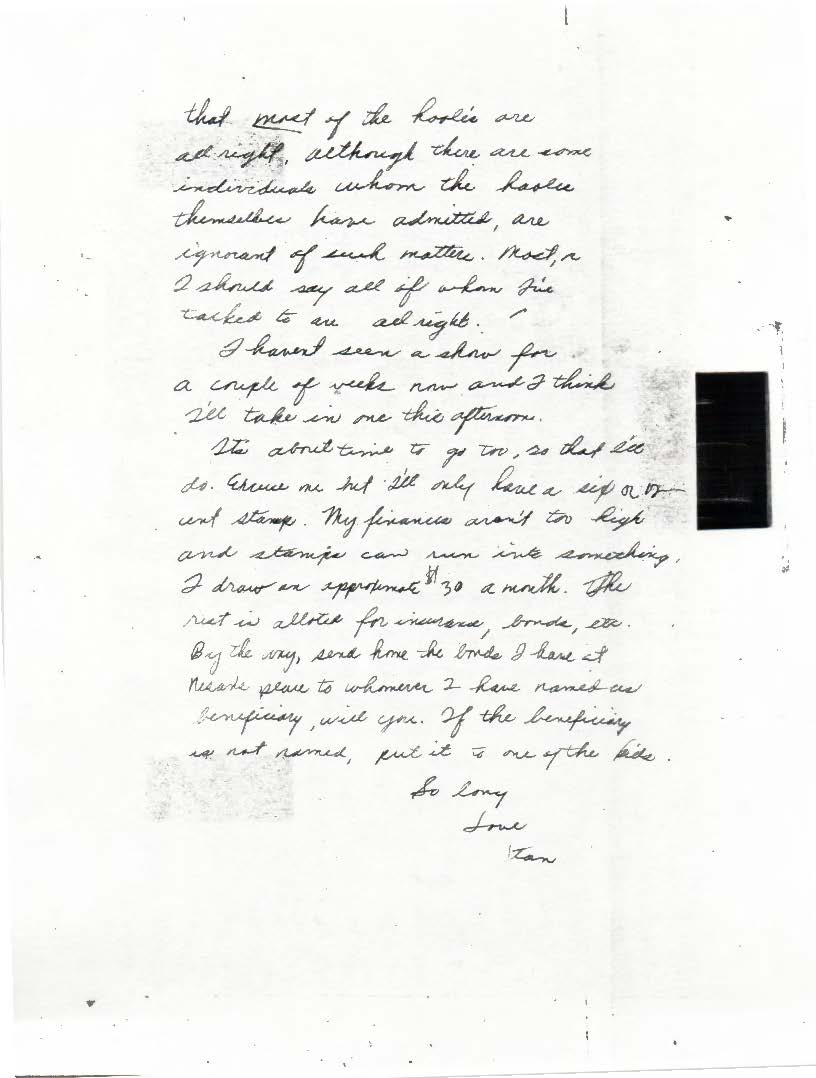 that most of the haoles are
all right, although there are some
individuals whom the haoles
themselves have admitted, are
ignorant of such matters. Most, or
I should say all of whom I've
talked to are all right.
I haven't seen a show for
a couple of weeks now and I think
I'll take in one this afternoon.
It's about time to go too, so that I'll
do. Excuse me but I'll only have a six or
cent stamp. My finances aren't too high
and stamps can run into something.
I draw an approximate $30 a month. The
rest is alloted for insurance, bonds, etc.
By the way, send home the bonds I have at
place to whomever I have named as
beneficiary, will you. If the beneficiary
is not named, put it to one of the kids.
So long
Love